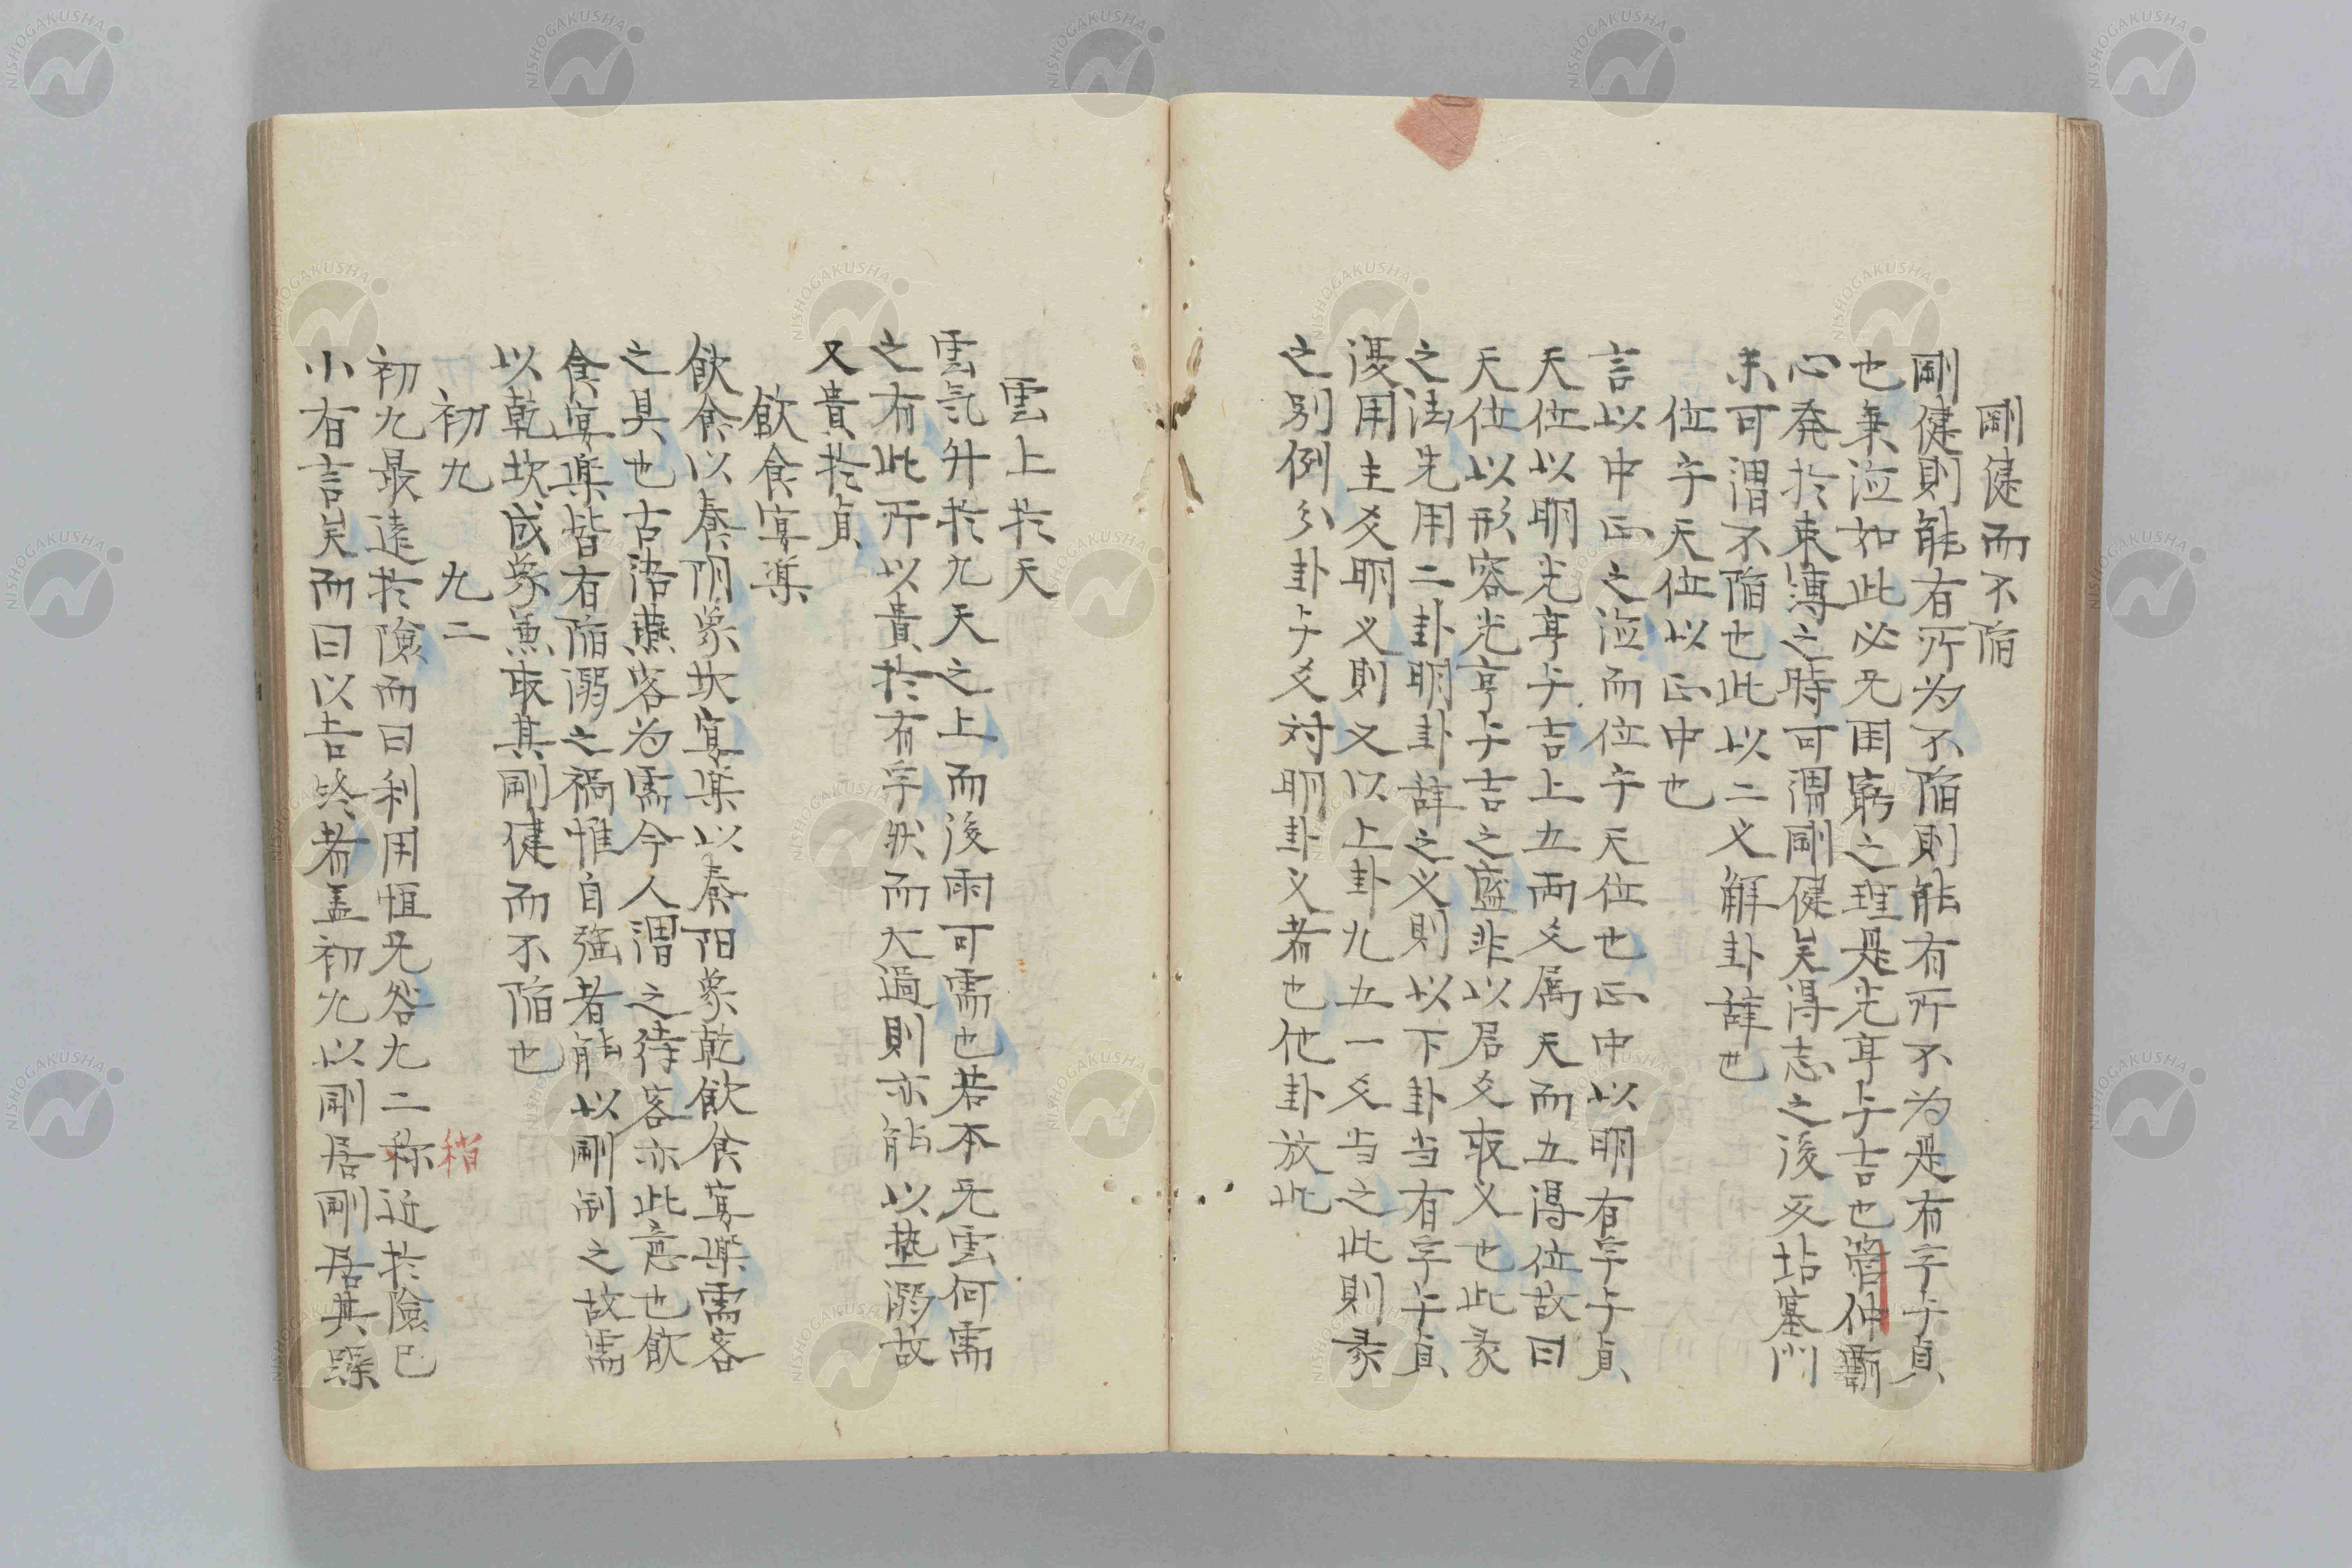 剛健而不陥
剛健則能有所为不陥則能有所不为是有孚与貞
也秉涖如此必无困窮之理是光亨与吉也管仲覇
心発於束薄之時可謂剛健矣得志之後反坫塞门
未可謂不陥也此以二义解卦辞也
位乎天位以正中也
言以中正之涖而位乎天位也正中以明有孚与貞
天位以明光亨与吉上五両爻属天而五得位故曰
天位以形容光亨与吉之盛非以居爻取义也此彖
之法先用二卦明卦辞之义則以下卦当有孚与貞
後用主爻明义則又以上卦九五一爻当之此則彖
之別例分卦与爻対明卦义者也他卦放此
雲上於天
雲気升於九天之上而後雨可需也若本无雲何需
之有此所以貴於有孚然而大過則亦能以墊溺故
又貴於貞
飲食宴楽
飲食以養阴象坎宴楽以養阳象乾飲食宴楽需客
之具也古语燕客为需今人謂之待客亦此意也飲
食宴楽皆有陥溺之禍惟自強者能以剛制之故需
以乾坎成象兼取其剛健而不陥也
初九　九二
初九最遠於險而曰利用恒无咎九二称近於險已
稍
小有言矣而曰以吉終者盖初九以剛居剛居其躁